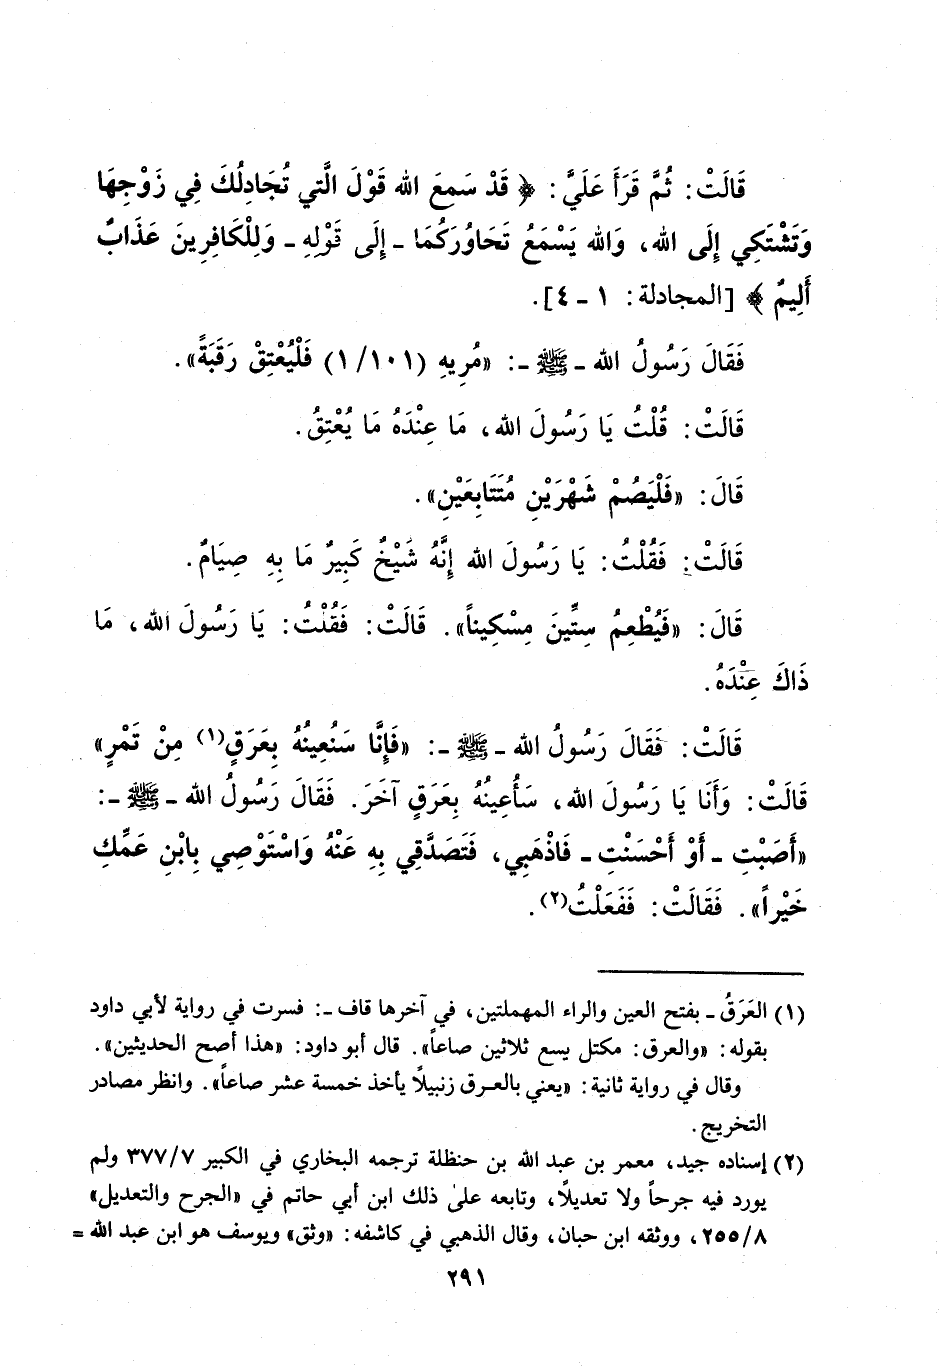 قَالَتْ: ثُمَّ قَرَأَ عَلَيَّ: ﴿ قَدْ سَمِعَ الله قَوْلَ الَّتي تُجَادِلُكَ فِي زَوْجِهَا
وَتَشْتَكِي إِلَى اللهِ، وَالله يَسْمَعُ تَحَاوُرَكُمَا ـ إِلَى قَوْلِهِ ـ وَلِلْكَافِرِينَ عَذَابٌ
أَلِيمٌ ﴾ [المجادلة: ١ ـ ٤].
فَقَالَ رَسُولُ الله ـ ﷺ ـ: «مُرِيهِ (١/١٠١) فَلْيُعْتِقْ رَقَبَةً».
قَالَتْ: قُلْتُ يَا رَسُولَ الله، مَا عِنْدَهُ مَا يُعْتِقُ.
قَالَ: «فَلْيَصُمْ شَهْرَيْنِ مُتَتَابِعَيْنِ».
قَالَتْ: فَقُلْتُ: يَا رَسُولَ الله إِنَّهُ شَيْخٌ كَبِيرٌ مَا بِهِ صِيَامٌ.
قَالَ: «فَيُطْعِمُ سِتِّينَ مِسْكِيناً». قَالَتْ: فَقُلْتُ: يَا رَسُولَ الله، مَا
ذَاكَ عِنْدَهُ.
قَالَتْ: فَقَالَ رَسُولُ الله ـ ﷺ ـ: «فَإِنَّا سَنُعِينُهُ بِعَرَقٍ(١) مِنْ تَمْرٍ»
قَالَتْ: وَأَنَا يَا رَسُولَ الله، سَأُعِينُهُ بِعَرَقٍ آخَرَ. فَقَالَ رَسُولُ الله ـ ﷺ ـ:
«أَصَبْتِ ـ أَوْ أَحْسَنْتِ ـ فَاذْهَبِي، فَتَصَدَّقِي بِهِ عَنْهُ وَاسْتَوْصِي بِابْنِ عَمِّكِ
خَيْراً». فَقَالَتْ: فَفَعَلْتُ(٢).
(١) العَرَقُ ـ بفتح العين والراء المهملتين، في آخرها قاف ـ: فسرت في رواية لأبي داود
بقوله: «والعرق: مكتل يسع ثلاثين صاعاً». قال أبو داود: «هذا أصح الحديثين».
وقال في رواية ثانية: «يعني بالعرق زنبيلًا يأخذ خمسة عشر صاعاً». وانظر مصادر
التخريج.
(٢) إسناده جيد، معمر بن عبد الله بن حنظلة ترجمه البخاري في الكبير ٣٧٧/٧ ولم
يورد فيه جرحاً ولا تعديلًا، وتابعه على ذلك ابن أبي حاتم في «الجرح والتعديل»
٢٥٥/٨، ووثقه ابن حبان، وقال الذهبي في كاشفه: «وثق» ويوسف هو ابن عبد الله =
٢٩١